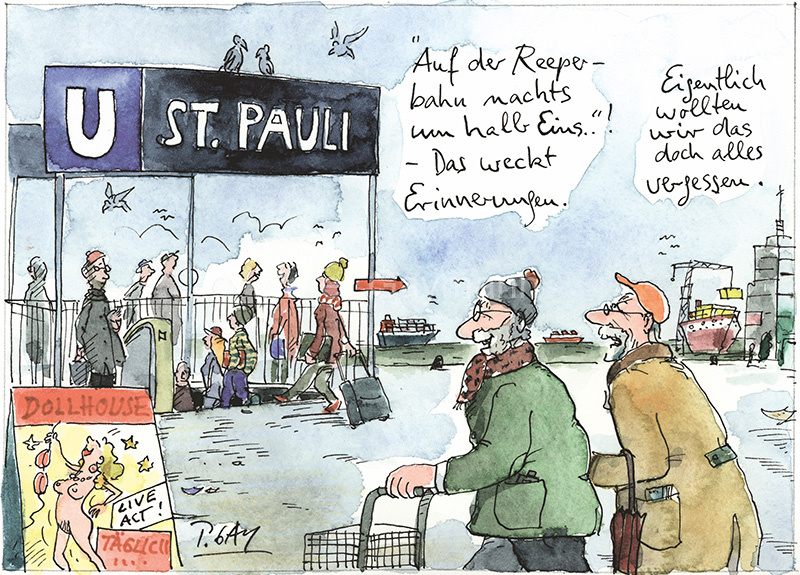 U ST. PAULI
"Auf der Reeper-
bahn nachts
um halb Eins.."!
- Das weckt
Erinnerungen.
Eigentlich
wollten
wir das
doch alles
vergessen.
DOLLHOUSE
LIVE
ACT!
TÄGLICH
....
P. GAY